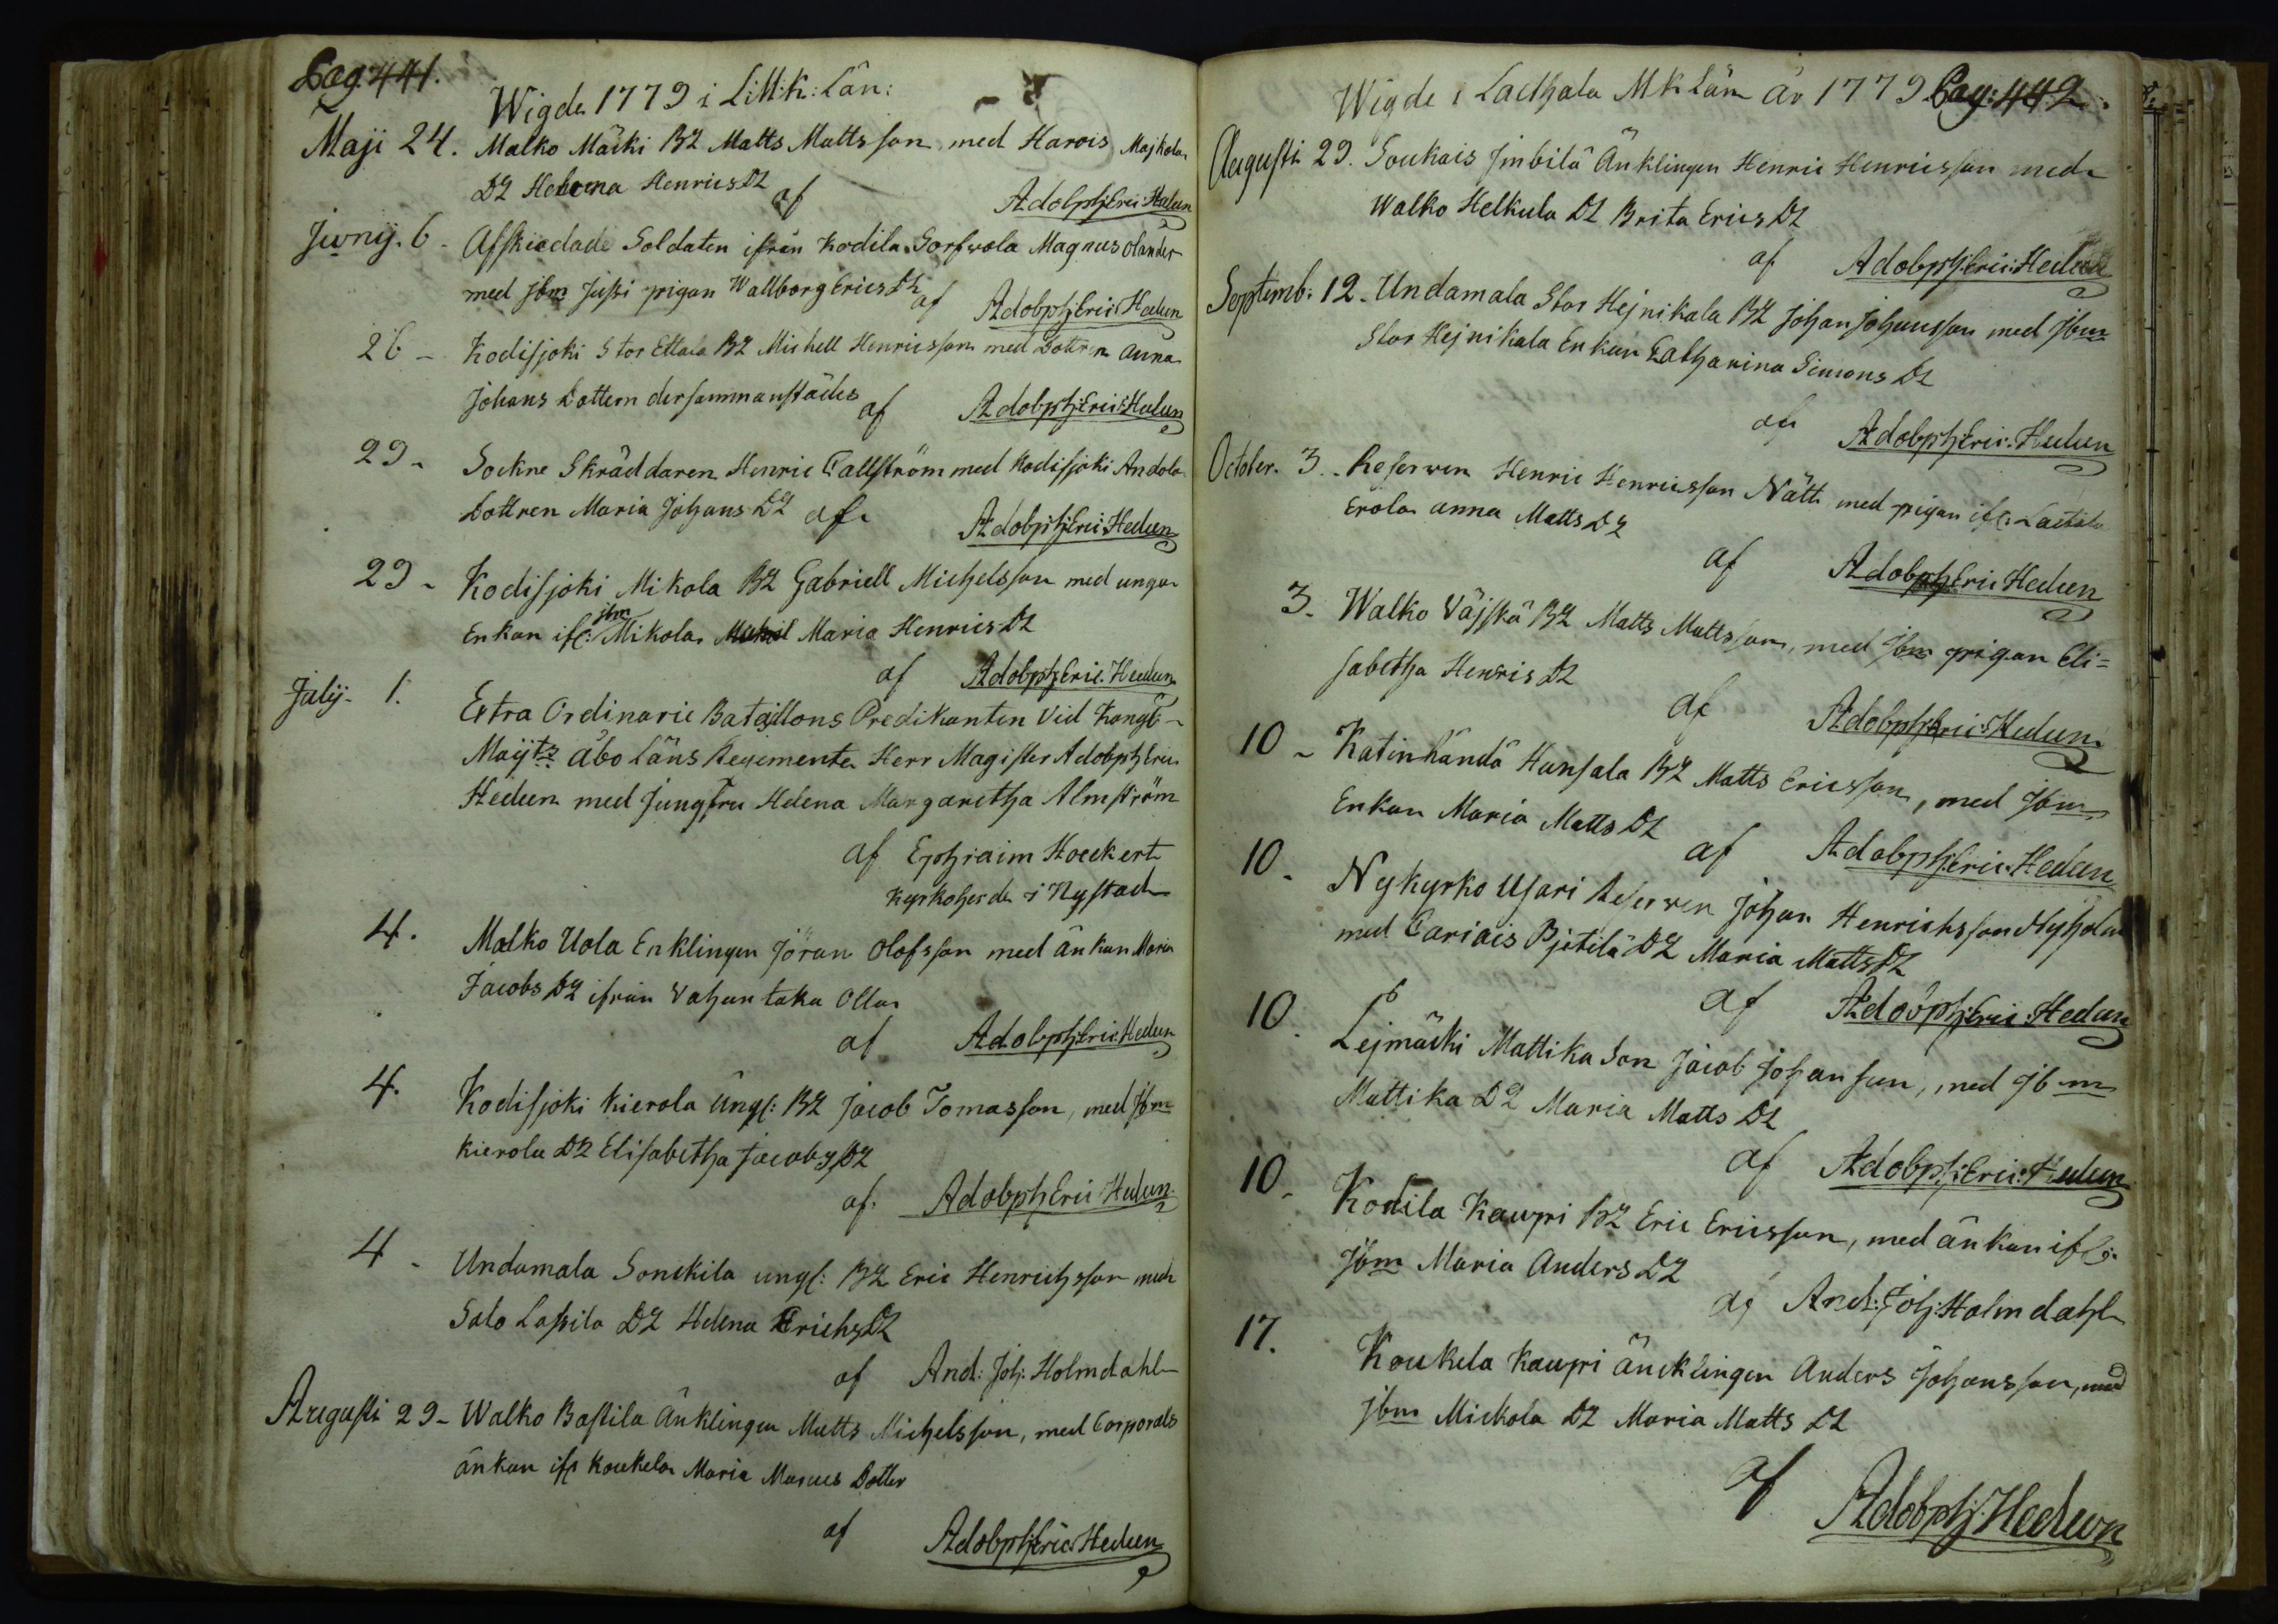 Pag: 441.
Wigde 1779 i L:M:k: Län:
Maji 24. Malko Mäcki BZ Matts Mattsson med Harois Majkola
DZ Helena Henrics DZ af Adolph Eric: Hedeen
Junij. 6. Afskiedade Soldaten ifrån Kodila Sorfwola Magnus Olander
med jbm Jussi pigan Wallborg Erics DZ af Adolph Eric: Hedeen
26 - Kodisjoki Stor Ettala BZ Michell Henricsson med Dottren Anna
Johans Dottern dersammanstädes af Adolph Eric: Hedeen
29 - Sockne Skräddaren Henric Fallström med Kodisjoki Andola
Dottren Maria Johans DZ af Adolph Eric: Hedeen
29 - Kodisjoki Mikola BZ Gabriell Michelsson med unga
Enkan ifr: jbm Mikola Maria Henrics DZ
af Adolph Eric: Hedeen
Julij. 1. Extra Ordinarie Bataillons Predikanten Vid Kongl
Maij:ts Åbo Läns Regemente Herr Magister Adolph Eric
Hedeen med Jungfru Helena Margaretha Almström
af Ephraim Hoeckert
Kyrkoherde i Nystad
4. Malko Uola Enklingen Jöran Olofsson med änkan Maria
Jacobs DZ ifrån Vahantaka Olla
af Adolph Eric: Hedeen
4. Kodisjoki Kierola Ungk: BZ Jacob Tomasson, med Jbm
Kierola DZ Elisabetha Jacobs DZ
af. Adolph Eric Hedeen
4 - Undamala Sonckila ungk: BZ Eric Henrichsson med
Salo Lassila DZ Helena Erichs DZ
af And: Joh: Holmdahl
Augusti 29 - Walko Bastila Änklingen Matts Michelsson, med Corporals
änkan ifr Koukela Maria Marcus Dotter
af Adolph Eric Hedeen
Wigde i Laethala M K Län år 1779 Pag: 442.
Augusti 29. Soukais Jmbilä Änklingen Henric Henricsson med
Walko Helkula DZ Brita Erics DZ
af Adolph: Eric: Hedeen
Septemb: 12. Undamala Stor Hejnikala BZ Johan Johansson med Jbm
Stor Hejnikala Enkan Catharina Simons DZ
af Adolph Eric: Hedeen
October. 3. Reserven Henric Henricsson Nätt med pigan ifr: Laitila
Erola Anna Matts DZ
af Adolph Eric Hedeen
3. Walko Väjskä BZ Matts Mattsson, med Jbm pigan Eli=
sabetha Henris DZ
af Adolph Eric: Hedeen
10 - Katinhändä Hansala BZ Matts Ericsson, med Jbm
Enkan Maria Matts DZ
af Adolph: Eric: Hedeen
10. Nykyrko Usari Reserven Johan Henrichsson Nyholm
med Cariais Pjetilä DZ Maria Matts DZ
af Adolph: Eric: Hedeen
10. Lejmäcki Mattika Son Jacob Johansson, med Jbm
Mattika DZ Maria Matts DZ
af Adolph: Eric: Hedeen
10. Kodila Kaupri BZ Eric Ericsson, med änkan ifr:
Jbm Maria Anders DZ
af And: Joh: Holmdahl
17. Koukela Kaupri äncklingen Anders Johansson, med
Jbm Mickola DZ Maria Matts DZ
af Adolph: Hedeen